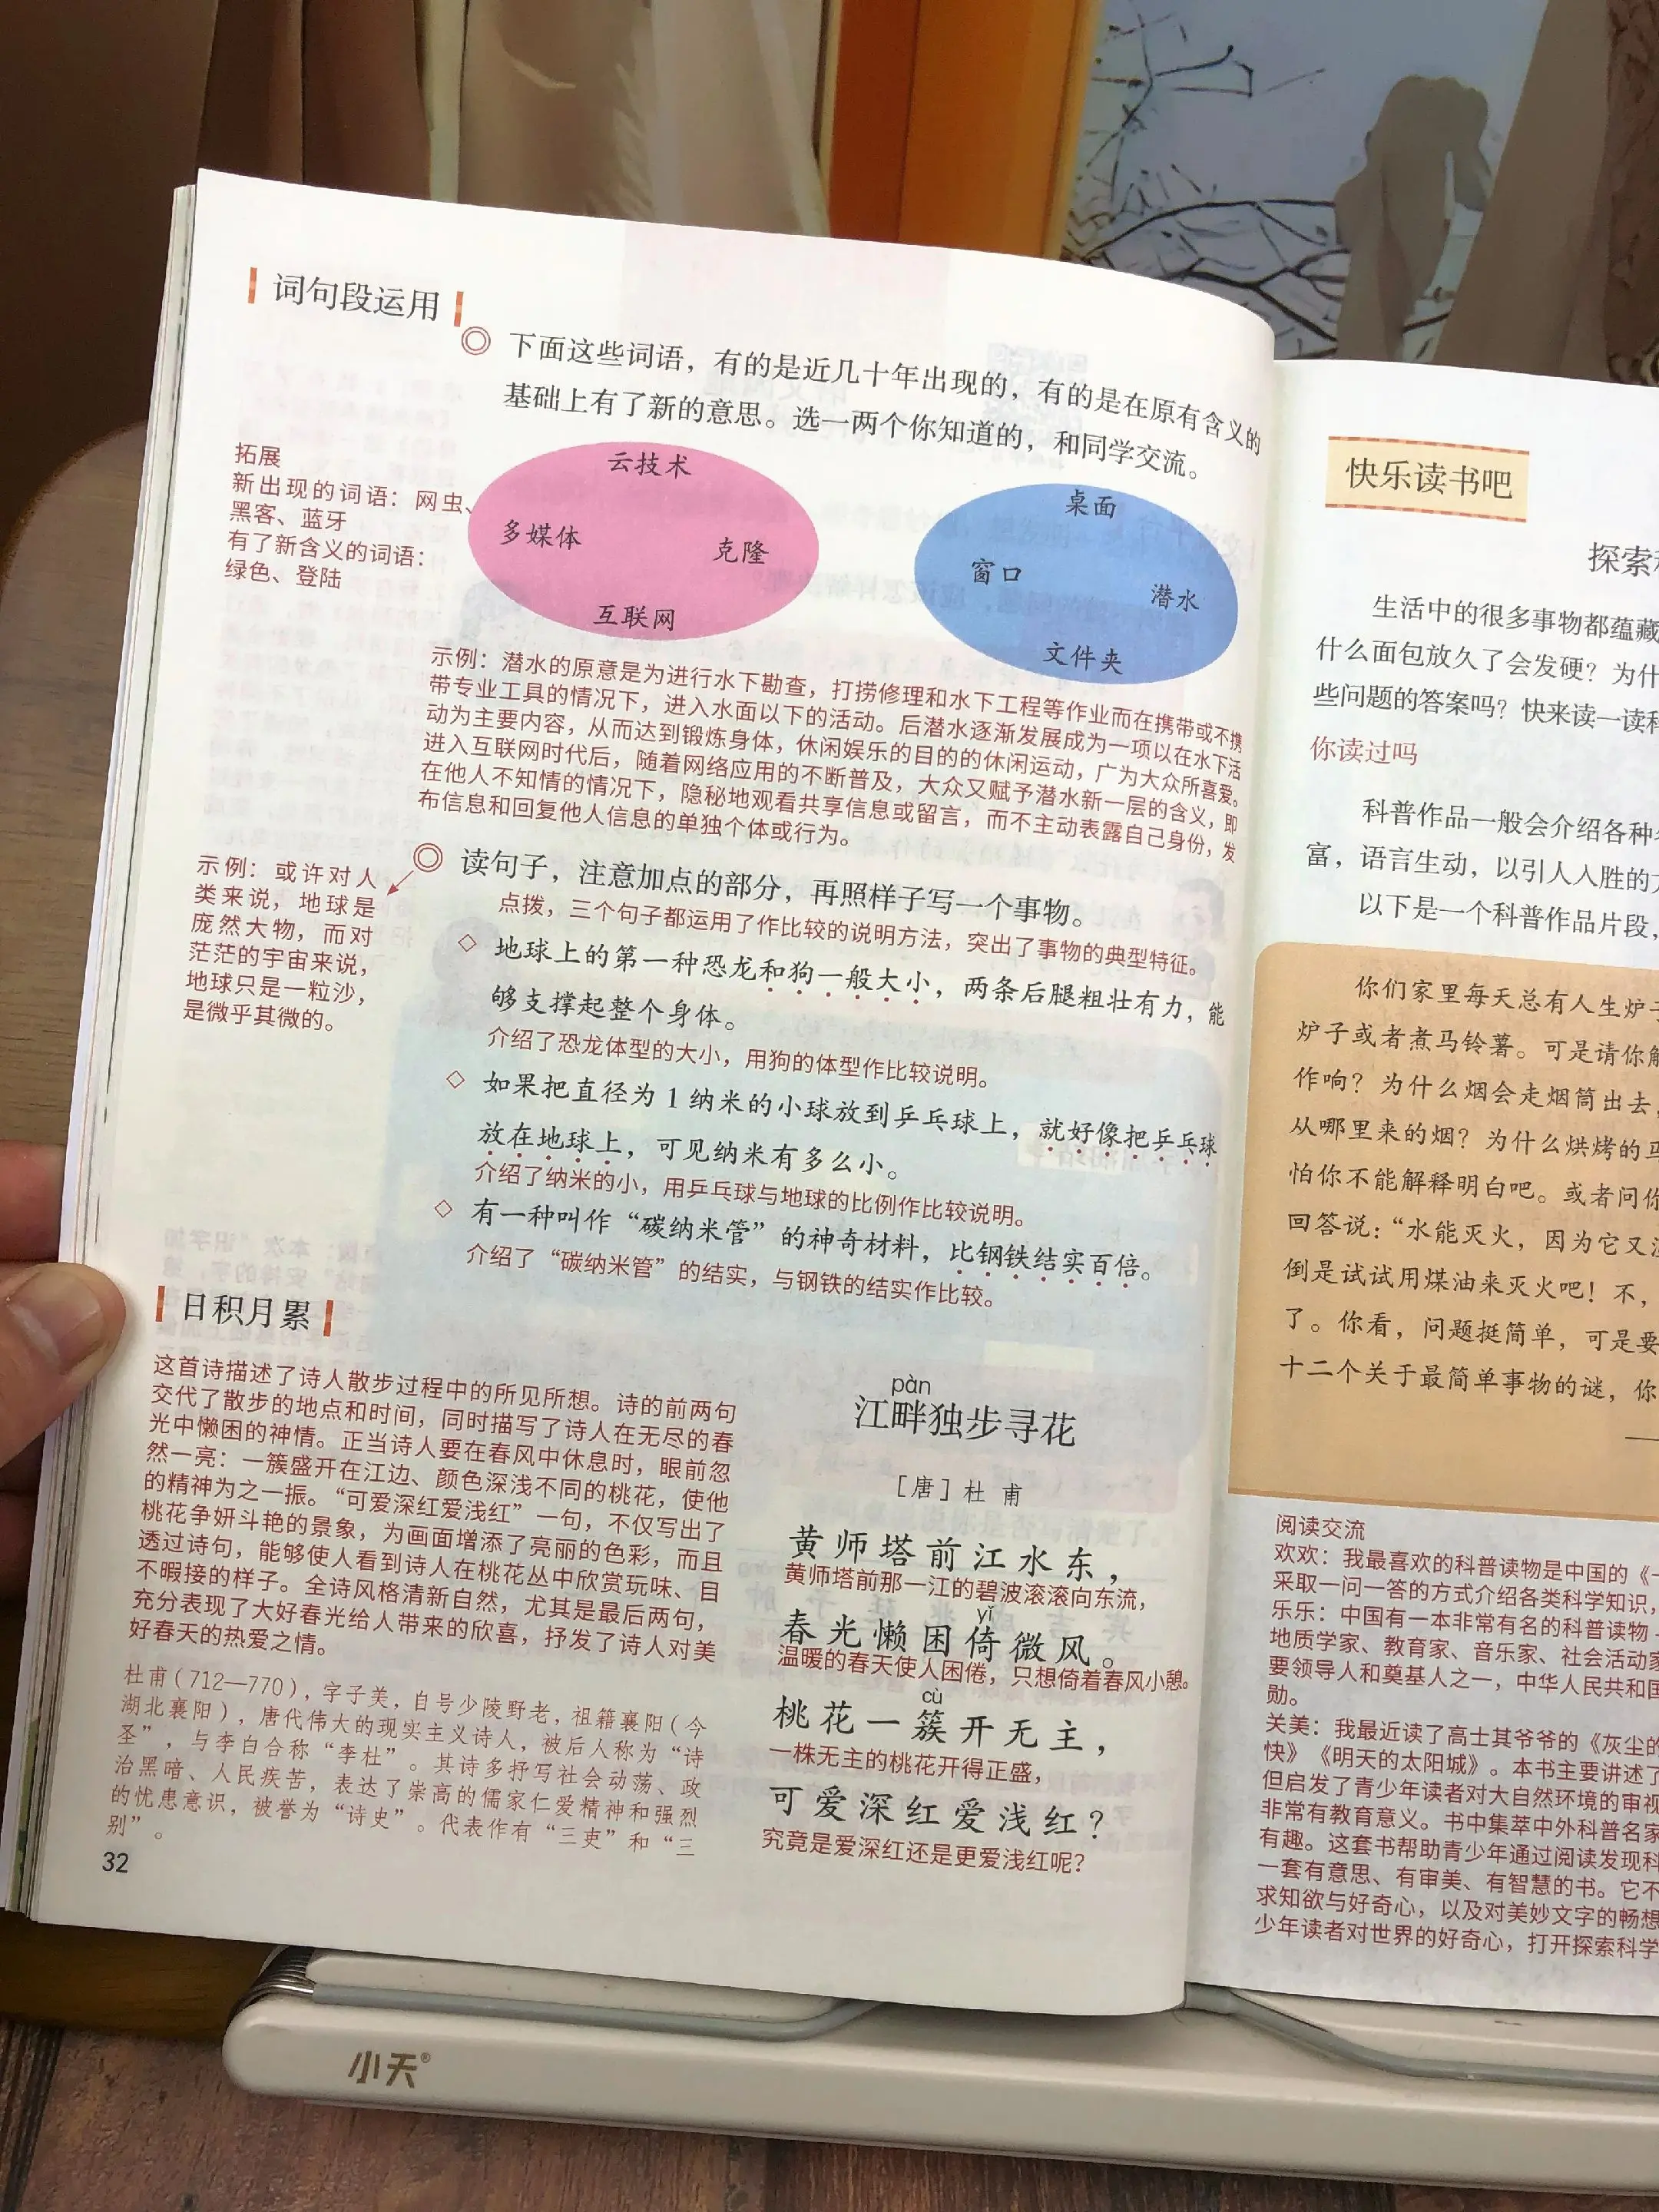 词句段运用
下面这些词语，有的是近几十年出现的，有的是在原有含义的
基础上有了新的意思。选一两个你知道的，和同学交流。
拓展
新出现的词语：网虫、
黑客、蓝牙
有了新含义的词语：
绿色、登陆
云技术
多媒体
克隆
互联网
桌面
窗口
潜水
文件夹
示例：潜水的原意是为进行水下勘查，打捞修理和水下工程等作业而在携带或不携
带专业工具的情况下，进入水面以下的活动。后潜水逐渐发展成为一项以在水下活
动为主要内容，从而达到锻炼身体，休闲娱乐的目的的休闲运动，广为大众所喜爱。
进入互联网时代后，随着网络应用的不断普及，大众又赋予潜水新一层的含义，即
在他人不知情的情况下，隐秘地观看共享信息或留言，而不主动表露自己身份，发
布信息和回复他人信息的单独个体或行为。
示例：或许对人
类来说，地球是
庞然大物，而对
茫茫的宇宙来说，
地球只是一粒沙，
是微乎其微的。
读句子，注意加点的部分，再照样子写一个事物。
点拨，三个句子都运用了作比较的说明方法，突出了事物的典型特征。
◇ 地球上的第一种恐龙和狗一般大小，两条后腿粗壮有力，能
够支撑起整个身体。
介绍了恐龙体型的大小，用狗的体型作比较说明。
◇ 如果把直径为1纳米的小球放到乒乓球上，就好像把乒乓球
放在地球上，可见纳米有多么小。
介绍了纳米的小，用乒乓球与地球的比例作比较说明。
◇ 有一种叫作“碳纳米管”的神奇材料，比钢铁结实百倍。
介绍了“碳纳米管”的结实，与钢铁的结实作比较。
日积月累
这首诗描述了诗人散步过程中的所见所想。诗的前两句
交代了散步的地点和时间，同时描写了诗人在无尽的春
光中懒困的神情。正当诗人要在春风中休息时，眼前忽
然一亮：一簇盛开在江边、颜色深浅不同的桃花，使他
的精神为之一振。“可爱深红爱浅红”一句，不仅写出了
桃花争妍斗艳的景象，为画面增添了亮丽的色彩，而且
透过诗句，能够使人看到诗人在桃花丛中欣赏玩味、目
不暇接的样子。全诗风格清新自然，尤其是最后两句，
充分表现了大好春光给人带来的欣喜，抒发了诗人对美
好春天的热爱之情。
杜甫（712—770），字子美，自号少陵野老，祖籍襄阳（今
湖北襄阳），唐代伟大的现实主义诗人，被后人称为“诗
圣”，与李白合称“李杜”。其诗多抒写社会动荡、政
治黑暗、人民疾苦，表达了崇高的儒家仁爱精神和强烈
的忧患意识，被誉为“诗史”。代表作有“三吏”和“三
别”。
32
pàn
江畔独步寻花
［唐］杜 甫
黄师塔前江水东，
黄师塔前那一江的碧波滚滚向东流，
yǐ
春光懒困倚微风。
温暖的春天使人困倦，只想倚着春风小憩。
cù
桃花一簇开无主，
一株无主的桃花开得正盛，
可爱深红爱浅红？
究竟是爱深红还是更爱浅红呢？
快乐读书吧
探索
生活中的很多事物都蕴藏
什么面包放久了会发硬？为什
些问题的答案吗？快来读一读科
你读过吗
科普作品一般会介绍各种
富，语言生动，以引人入胜的
以下是一个科普作品片段，
你们家里每天总有人生炉子
炉子或者煮马铃薯。可是请你解
作响？为什么烟会走烟筒出去，
从哪里来的烟？为什么烘烤的
怕你不能解释明白吧。或者问你
回答说：“水能灭火，因为它又
倒是试试用煤油来灭火吧！不，
了。你看，问题挺简单，可是要
十二个关于最简单事物的谜，你
阅读交流
欢欢：我最喜欢的科普读物是中国的《十
采取一问一答的方式介绍各类科学知识，
乐乐：中国有一本非常有名的科普读物
地质学家、教育家、音乐家、社会活动家
要领导人和奠基人之一，中华人民共和国
勋。
关美：我最近读了高士其爷爷的《灰尘的
快》《明天的太阳城》。本书主要讲述了
但启发了青少年读者对大自然环境的审视
非常有教育意义。书中集萃中外科普名家
有趣。这套书帮助青少年通过阅读发现科
一套有意思、有审美、有智慧的书。它不
求知欲与好奇心，以及对美妙文字的畅想
少年读者对世界的好奇心，打开探索科学
小天®